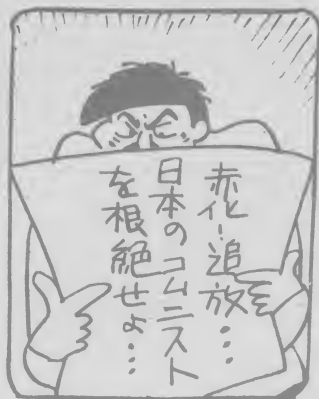 赤化追放…
日本のコムニスト
を根絶せよ…